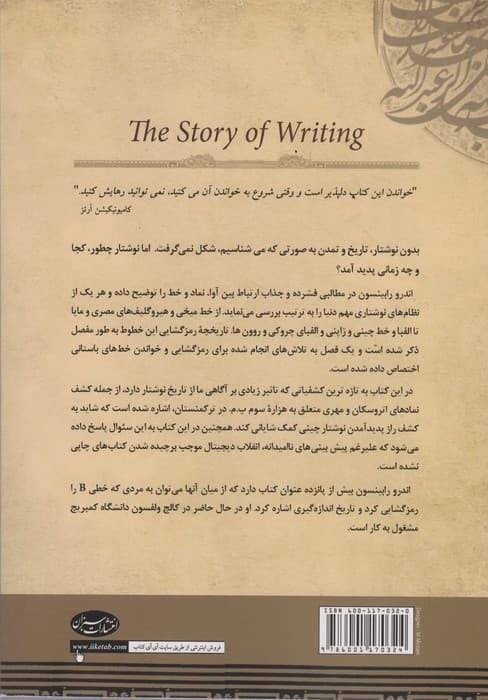 The Story of Writing
"خواندن این کتاب دلپذیر است و وقتی شروع به خواندن آن می کنید، نمی توانید رهایش کنید."
کامیونیکیشن آرتز
بدون نوشتار، تاریخ و تمدن به صورتی که می شناسیم، شکل نمی‌گرفت. اما نوشتار چطور، کجا
و چه زمانی پدید آمد؟
اندرو رابینسون در مطالبی فشرده و جذاب ارتباط بین آوا، نماد و خط را توضیح داده و هر یک از
نظام‌های نوشتاری مهم دنیا را به ترتیب بررسی می‌نماید. از خط میخی و هیروگلیف‌های مصری و مایا
تا الفبا و خط چینی و ژاپنی و الفبای چروکی و روون ها. تاریخچهٔ رمزگشایی این خطوط به طور مفصل
ذکر شده است و یک فصل به تلاش‌های انجام شده برای رمزگشایی و خواندن خط‌های باستانی
اختصاص داده شده است.
در این کتاب به تازه ترین کشفیاتی که تاثیر زیادی بر آگاهی ما از تاریخ نوشتار دارد، از جمله کشف
نمادهای اتروسکان و مهری متعلق به هزارهٔ سوم پ.م. در ترکمنستان، اشاره شده است که شاید به
کشف راز پدیدآمدن نوشتار چینی کمک شایانی کند. همچنین در این کتاب به این سئوال پاسخ داده
می‌شود که علیرغم پیش بینی‌های ناامیدانه، انقلاب دیجیتال موجب برچیده شدن کتاب‌های چاپی
نشده است.
اندرو رابینسون بیش از پانزده عنوان کتاب دارد که از میان آنها می‌توان به مردی که خطی B را
رمزگشایی کرد و تاریخ اندازه‌گیری اشاره کرد. او در حال حاضر در کالج ولفسون دانشگاه کمبریج
مشغول به کار است.
انتشارات سبزان
فروش اینترنتی از طریق سایت آی آی کتاب
www.iiketab.com
ISBN 600-117-032-0
9 786001 170324